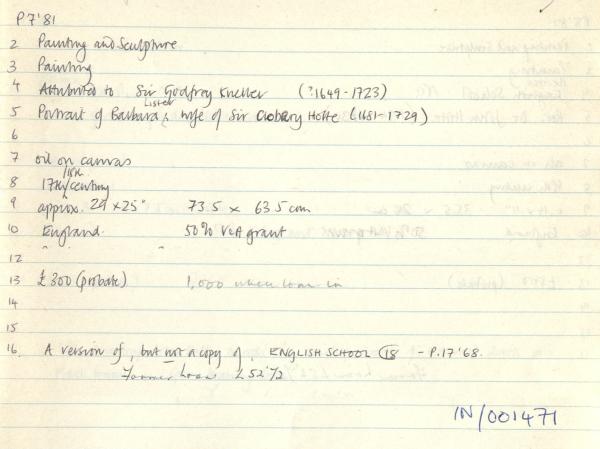 P7'81
2 Painting and Sculpture
3 Painting
4 Attributed to Sir Godfrey Kneller (?1649-1723)
5 Portrait of Barbara Lister, wife of Sir Clobery Holte (1681-1729)
6
7 oil on canvas
8 17th/18th century
9 approx. 29 x 25" 73.5 x 63.5 cm
10 England. 50% V&A grant
12
13 £300 (probate) 1,000 when loan in
14
15
16. A version of, but not a copy of, ENGLISH SCHOOL 18 - P.17'68.
Former loan L52'72
IN/001471